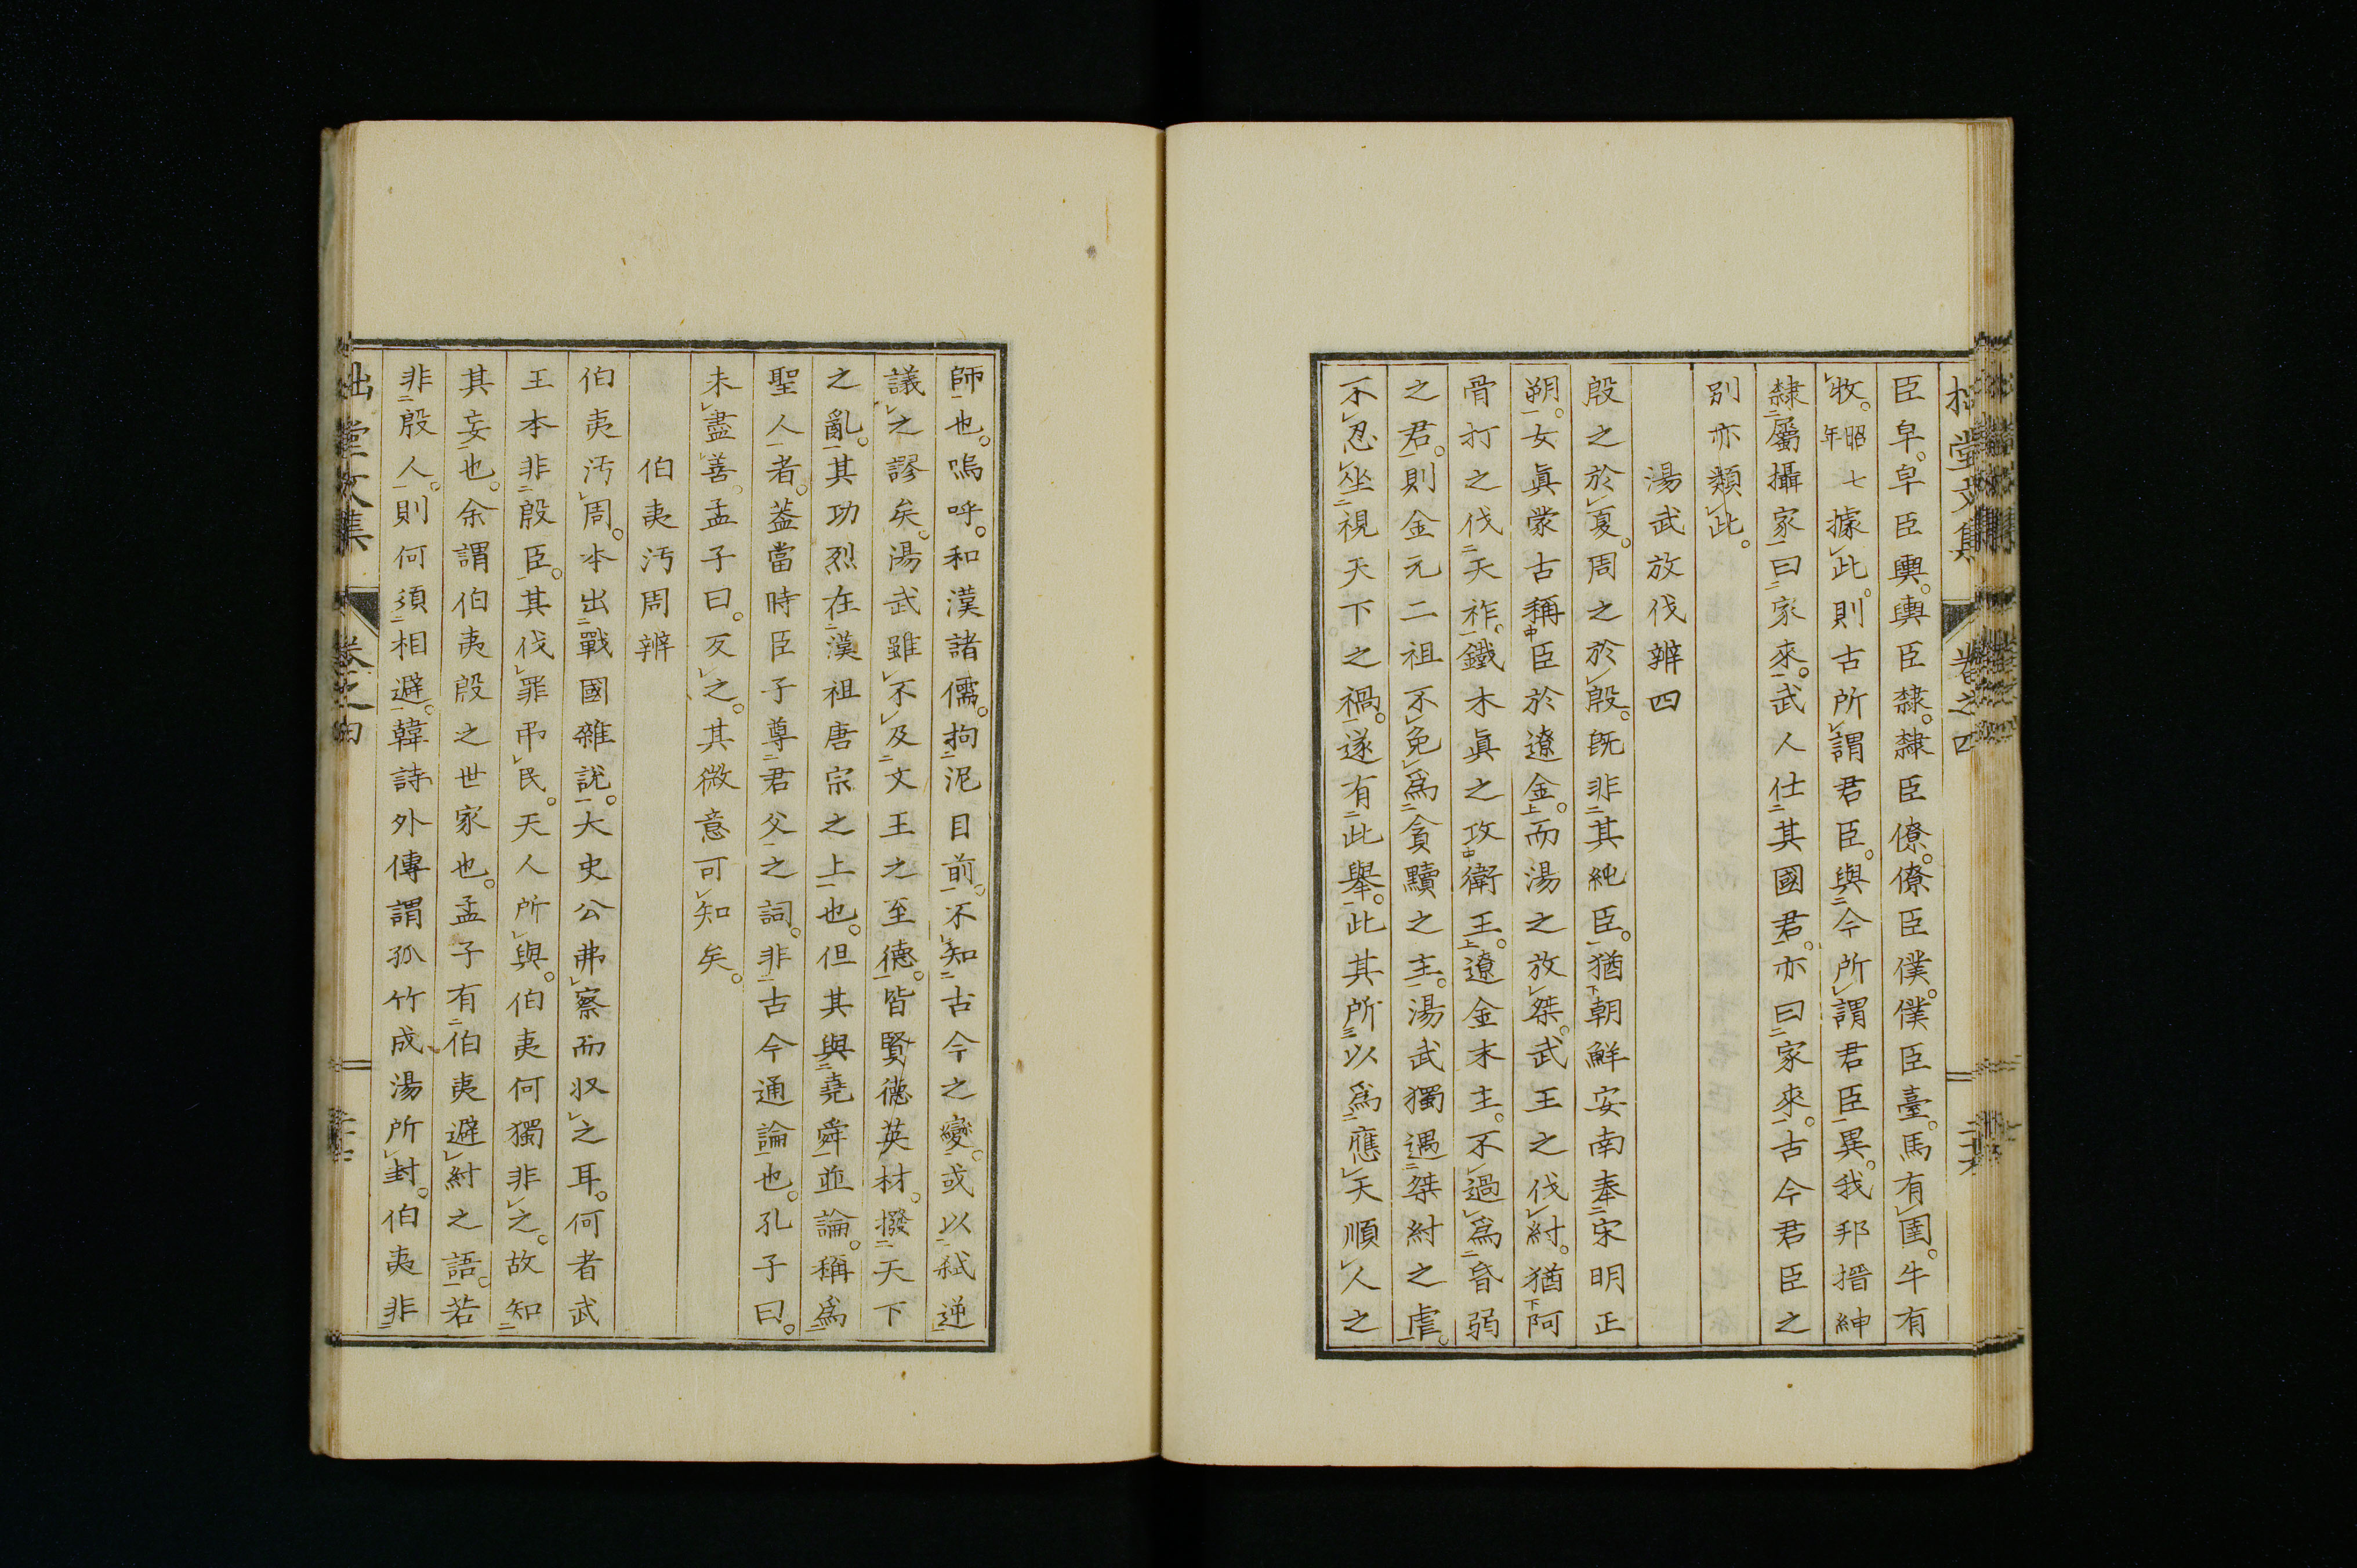 臣皁。皁臣輿。輿臣隸。隸臣僚。僚臣僕。僕臣臺。馬有圉。牛有
牧。昭七年據此。則古所謂君臣。與今所謂君臣異。我邦搢紳
隸屬攝家曰家來。武人仕其國君。亦曰家來。古今君臣之
別亦類此。
湯武放伐辨四
殷之於夏。周之於殷。既非其純臣。猶朝鮮安南奉宋明正
朔。女眞蒙古稱臣於遼金。而湯之放桀。武王之伐紂。猶阿
骨打之伐天祚。鐵木眞之攻衛王。遼金末主。不過爲昏弱
之君。則金元二祖不免爲貪黷之主。湯武獨遇桀紂之虐。
不忍坐視天下之禍。遂有此擧。此其所以爲應天順人之
師也。嗚呼。和漢諸儒。拘泥目前。不知古今之變。或以弑逆
議之謬矣。湯武雖不及文王之至德。皆賢德英材。撥天下
之亂。其功烈在漢祖唐宗之上也。但其與堯舜並論。稱爲
聖人者。蓋當時臣子尊君父之詞。非古今通論也。孔子曰。
未盡善。孟子曰。反之。其微意可知矣。
伯夷汚周辨
伯夷汚周。本出戰國雜說。大史公弗察而収之耳。何者武
王本非殷臣。其伐罪弔民。天人所與。伯夷何獨非之。故知
其妄也。余謂伯夷殷之世家也。孟子有伯夷避紂之語。若
非殷人。則何須相避。韓詩外傳謂孤竹成湯所封。伯夷非
拙堂文集 卷之四